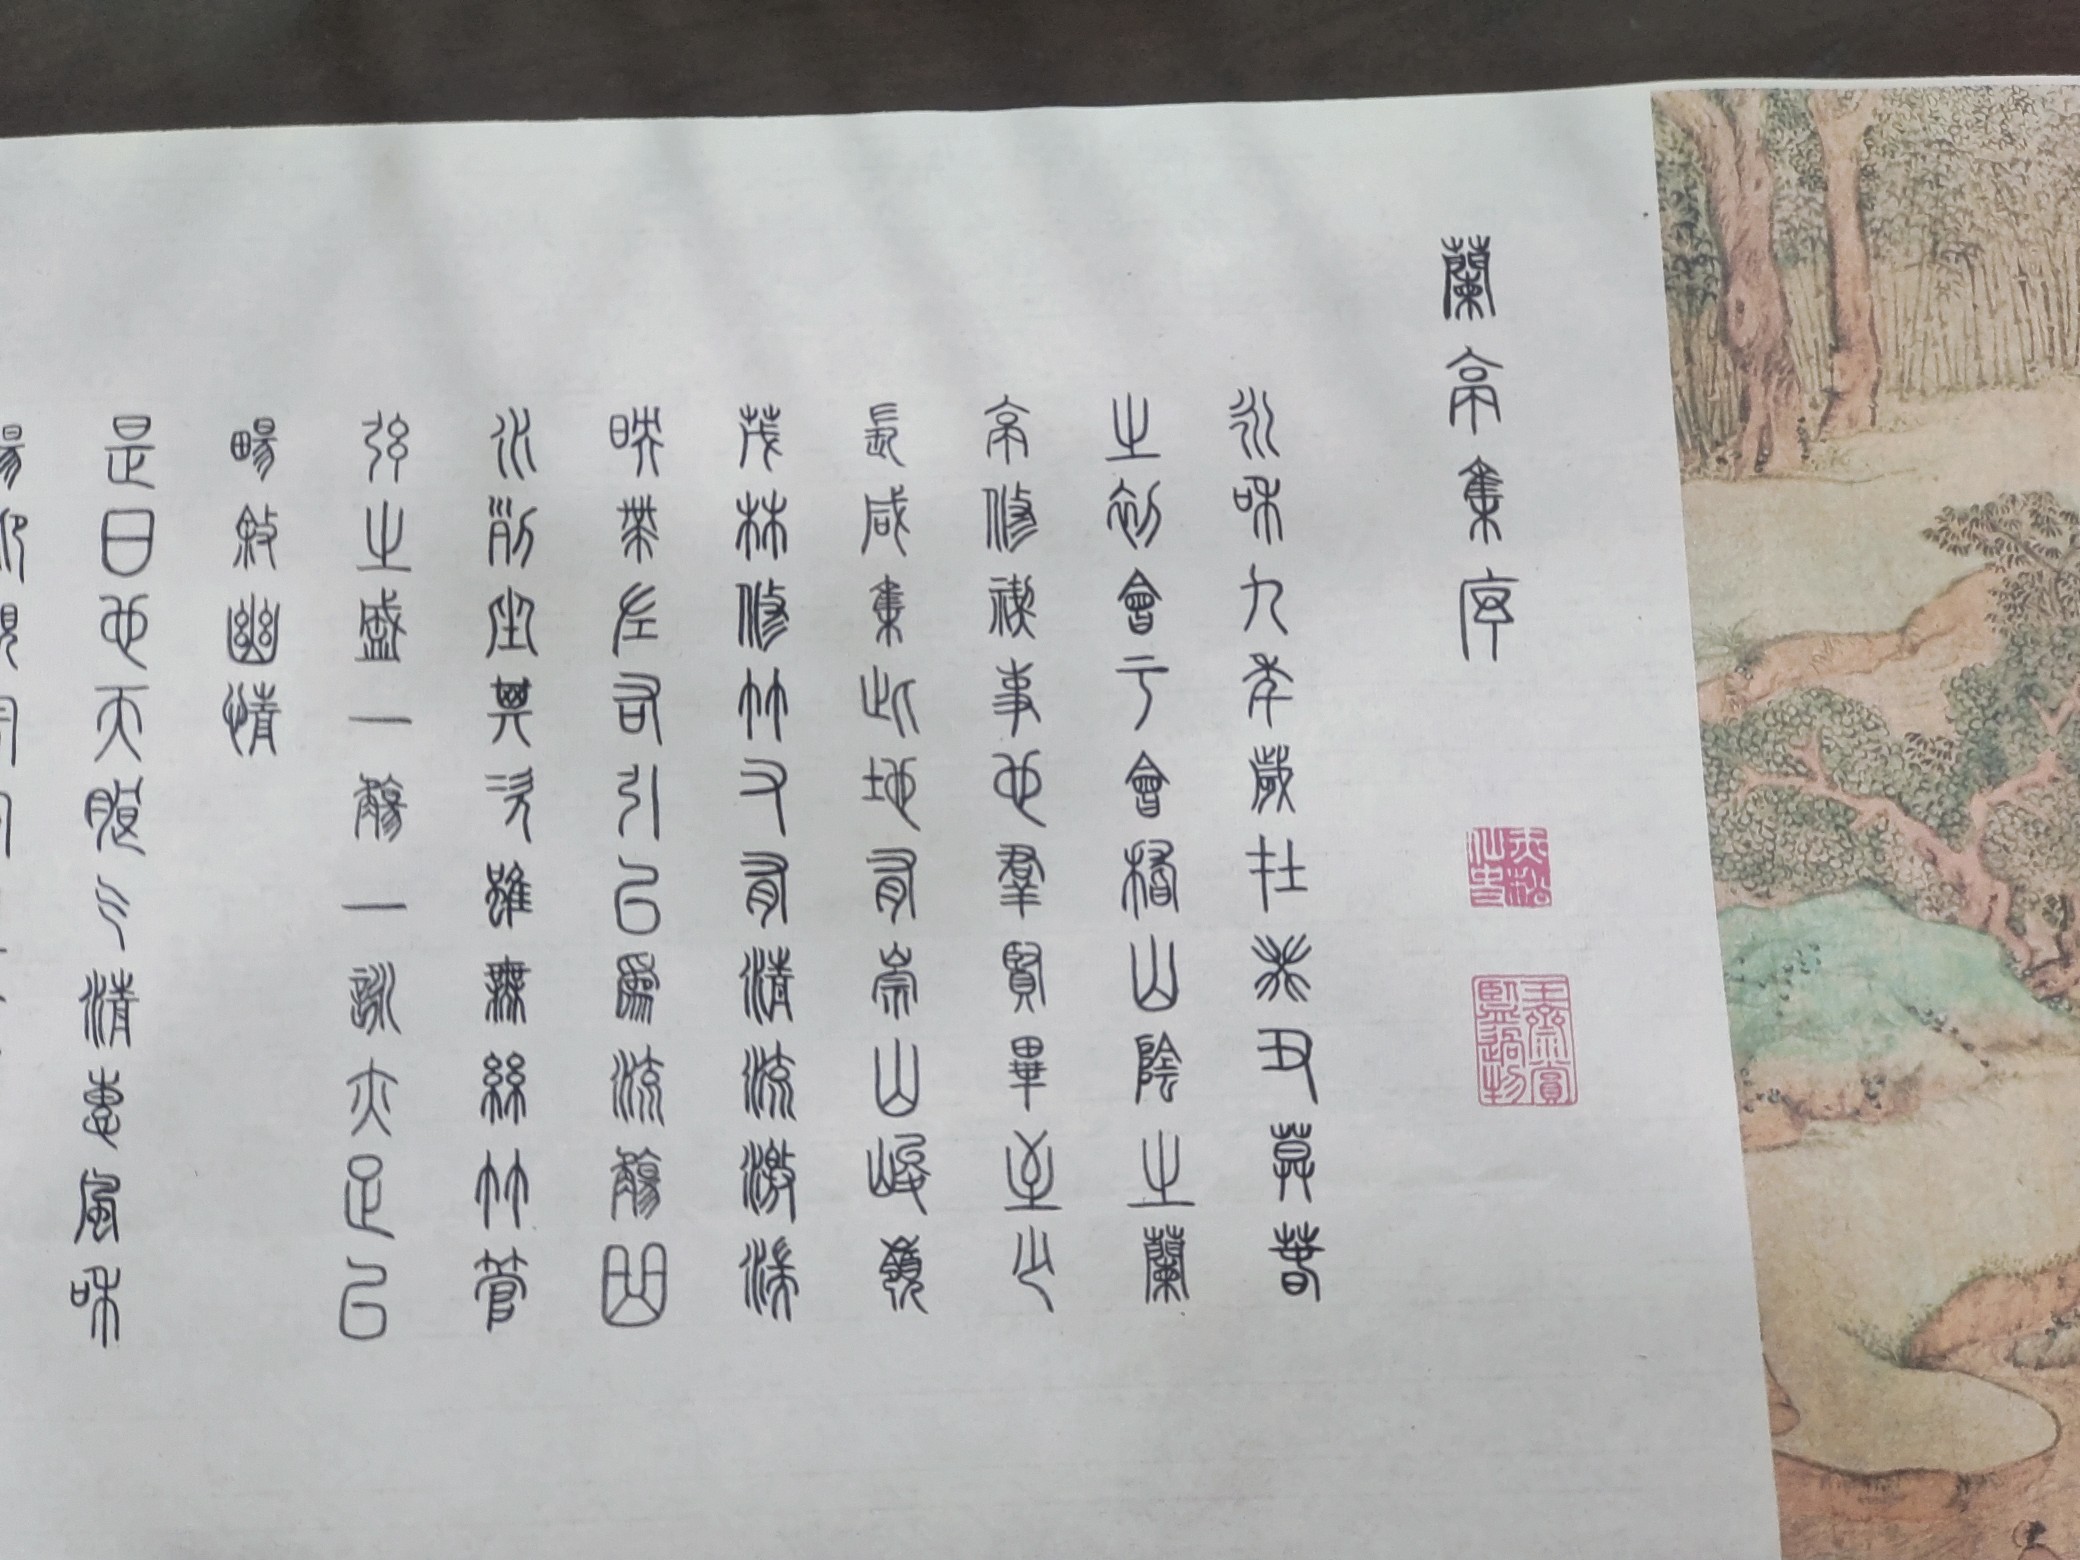 蘭亭集序
永和九年歲在癸丑莫春
之初會于會稽山陰之蘭
亭修禊事也羣賢畢至少
長咸集此地有崇山峻嶺
茂林修竹又有清流激湍
映帶左右引以為流觴曲
水列坐其次雖無絲竹管
弦之盛一觴一詠亦足以
暢敘幽情
是日也天朗气清惠風和
暢仰觀